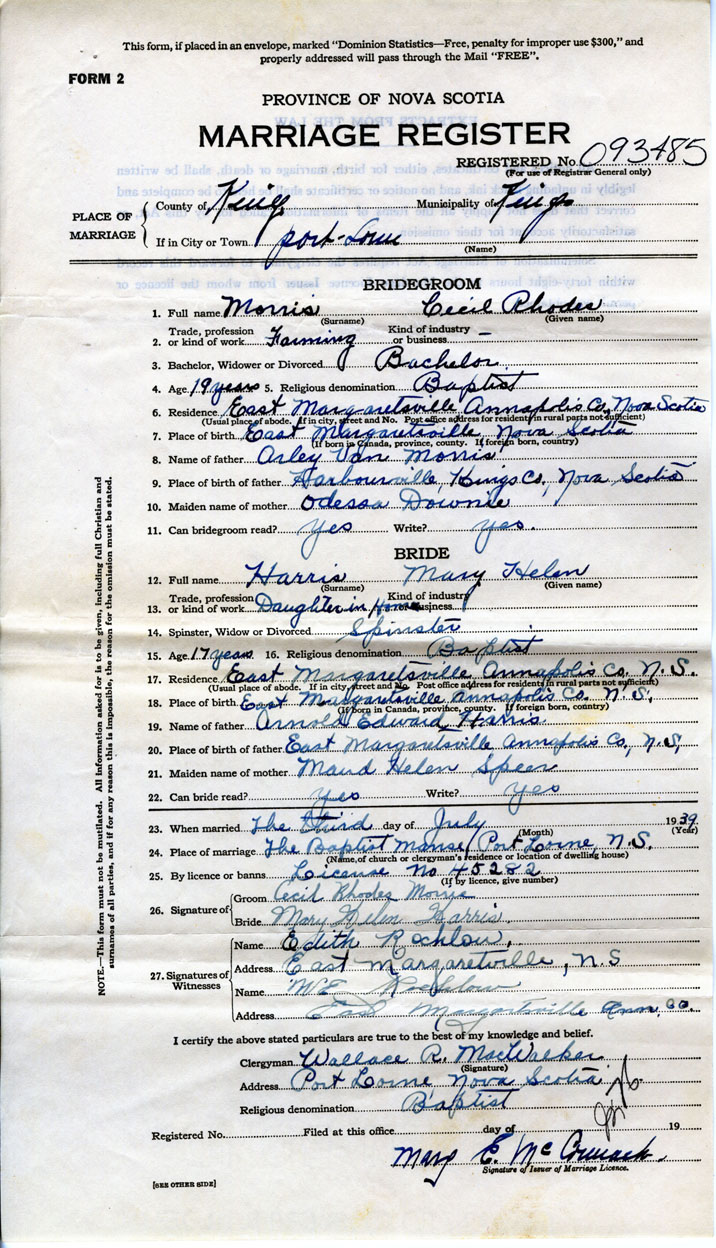 This form, if placed in an envelope, marked "Dominion Statistics—Free, penalty for improper use $300," and
properly addressed will pass through the Mail "FREE".
FORM 2
PROVINCE OF NOVA SCOTIA
MARRIAGE REGISTER
REGISTERED No. 093485
(For use of Registrar General only)
PLACE OF MARRIAGE
County of Kings Municipality of Kings
If in City or Town port-Lorne
(Name)
BRIDEGROOM
1. Full name Morris Cecil Rhodes
(Surname) (Given name)
2. Trade, profession or kind of work Farming Kind of industry or business —
3. Bachelor, Widower or Divorced Bachelor
4. Age 19 years 5. Religious denomination Baptist
6. Residence East Margaretsville Annapolis Co, Nova Scotia
(Usual place of abode. If in city, street and No. Post office address for residents in rural parts not sufficient)
7. Place of birth East Margaretsville, Nova Scotia
(If born in Canada, province, county. If foreign born, country)
8. Name of father Arley Van Morris
9. Place of birth of father Harbourville, Kings Co, Nova Scotia
10. Maiden name of mother Odessa Downie
11. Can bridegroom read? yes Write? yes.
BRIDE
12. Full name Harris Mary Helen
(Surname) (Given name)
13. Trade, profession or kind of work Daughter in Home Kind of industry or business
14. Spinster, Widow or Divorced Spinster
15. Age 17 years 16. Religious denomination Baptist
17. Residence East Margaretsville Annapolis Co. N.S.
(Usual place of abode. If in city, street and No. Post office address for residents in rural parts not sufficient)
18. Place of birth East Margaretsville Annapolis Co. N.S.
(If born in Canada, province, county. If foreign born, country)
19. Name of father Arnold Edward Harris.
20. Place of birth of father East Margaretsville Annapolis Co., N.S,
21. Maiden name of mother Maud Helen Speer
22. Can bride read? yes Write? yes
23. When married The third day of July 1939
(Month) (Year)
24. Place of marriage The Baptist Manse, Port Lorne, N.S.
(Name of church or clergyman's residence or location of dwelling house)
25. By licence or banns License No 45282
(If by licence, give number)
26. Signature of
Groom Cecil Rhodes Morris
Bride Mary Helen Harris.
27. Signatures of Witnesses
Name Edith Rochlow.
Address East Margaretville, N S
Name
Address East Margartsville Ann. Co.
I certify the above stated particulars are true to the best of my knowledge and belief.
Clergyman Wallace R. MacWalker
(Signature)
Address Port Lorne Nova Scotia
Religious denomination Baptist
Registered No. Filed at this office day of 19
Mary E. McCormack
Signature of Issuer of Marriage Licence.
[SEE OTHER SIDE]
NOTE.—This form must not be mutilated. All information asked for is to be given, including full Christian and
surnames of all parties, and if for any reason this is impossible, the reason for the omission must be stated.